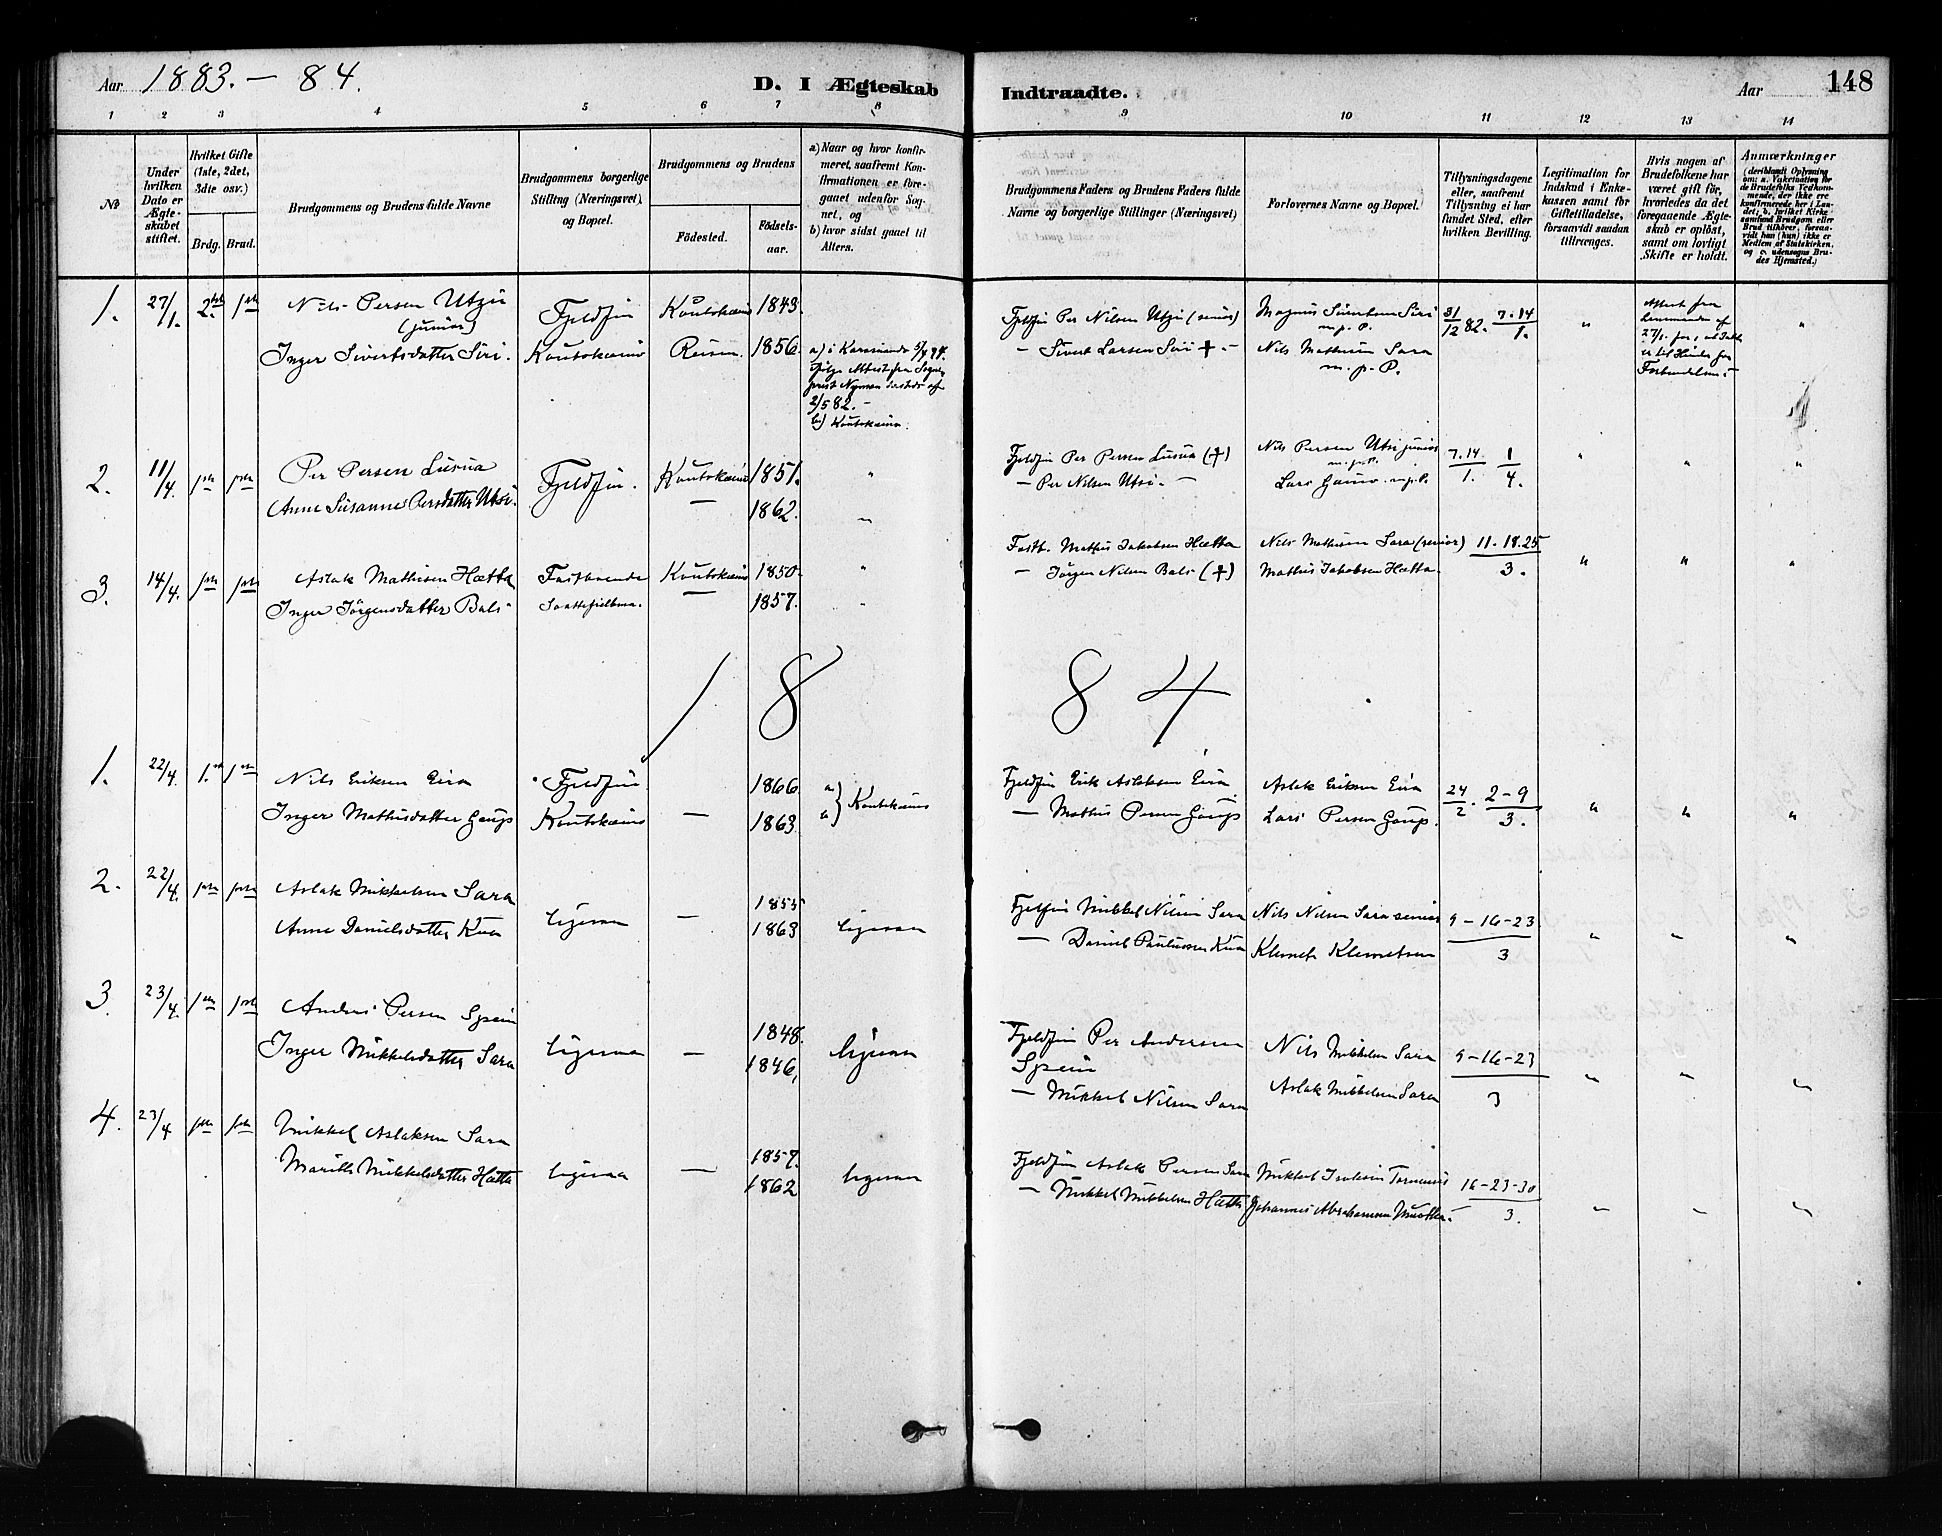 Aar 1883. - 84.
D. I Ægteskab
Indtraadte.
Aar
148
1 2 3 4 5 6 7 8 9 10 11 12 13 14
No
Under hvilken Dato er Ægteskabet stiftet.
Hvilket Gifte (1ste, 2det, 3die osv.)
Brdg. Brud.
Brudgommens og Brudens fulde Navne
Brudgommens borgerlige Stilling (Næringsvei), og Bopæl.
Brudgommens og Brudens
Fødested. Fødselsaar.
a) Naar og hvor konfirmeret, saafremt Konfirmationen er foregaaet udenfor Sognet, og
b) hvor sidst gaaet til Alters.
Brudgommens Faders og Brudens Faders fulde Navne og borgerlige Stillinger (Næringsvei)
Forlovernes Navne og Bopæl.
Tillysningsdagene eller, saafremt Tillysning ei har fundet Sted, efter hvilken Bevilling.
Legitimation for Indskud i Enkekassen samt for Giftetilladelse, forsaavidt saadan tiltrænges.
Hvis nogen af Brudefolkene har været gift før, hvorledes da det foregaaende Ægteskab er opløst, samt om lovligt Skifte er holdt.
Anmærkninger (deriblandt Oplysning om: a. Vaksination for de Brudefolks Vedkommende, der ikke ere konfirmerede her i Landet; b. hvilket Kirkesamfund Brudgom eller Brud tilhører, forsaavidt han (hun) ikke er Medlem af Statskirken, og c. udensogns Brudes Hjemsted.)
1. 27/1. 2det 1ste Nils Persen Utzi (junior) Fjeldfin Koutokeino 1843.
Inger Sivertsdatter Siri. Koutokeino Reisen. 1856.
2/5 82. -
b) Koutokeino.
Fjeldfin Per Nilsen Utzi (senior)
- Sivert Larsen Siri † -
Siri m. p. P.
Nils Mathisen Sara m. p. P.
31/12 82. 7. 14/1. " "
2. 11/4. Per Persen Fjeldfin. Koutokeino 1851. "
Anne Susanne Persdatter Utsi. - 1862. "
Fjeldfin Per Persen (†)
- Per Nilsen Utsi. -
Nils Persen Utsi junior m. p. P.
Lars Gaino m. p. P.
7. 14/1. 1/4. " " "
3. 14/4. Aslak Mathisen Hætta Fastboende Koutokeino 1850. "
Inger Jørgensdatter Bals - - 1857. "
Fastb. Mathis Jakobsen Hætta
- Jørgen Nilsen Bals (†)
Nils Mathisen Sara (senior)
Mathis Jakobsen Hætta.
11. 18. 25/3. " " "
1884
1. 22/4. 1. 1ste Nils Eriksen Eira Fjeldfin 1866 a
Inger Mathisdatter Gaup Koutokeino - 1863 Koutokeino
Fjeldfin Erik Aslaksen Eira
- Mathis Persen Gaup
Aslak Eriksen Eira
Lars Persen Gaup.
24/2. 2-9/3. " " "
2. 22/4. Aslak Mikkelsen Sara 1855
Anne Danielsdatter Kua ligesaa - 1863 ligesaa
Fjeldfin Mikkel Nilsen Sara
- Daniel Paulussen Kua
Nils Nilsen Sara senior
Klemet Klemetsen
9-16-23/3 " " "
3. 23/4. Anders Persen Spein 1848.
Inger Mikkelsdatter Sara ligesaa - 1846, ligesaa
Fjeldfin Per Andersen Spein
- Mikkel Nilsen Sara
Nils Mikkelsen Sara
Aslak Mikkelsen Sara
9-16-23/3 " " "
4. 23/4 Mikkel Aslaksen Sara 1857.
Marith Mikkelsdatter Hætta ligesaa - 1862 ligesaa
Fjeldfin Aslak Persen Sara
- Mikkel Mikkelsen Hætta
Mikkel
Johannes Abrahamsen
16-23-30/3. " " "